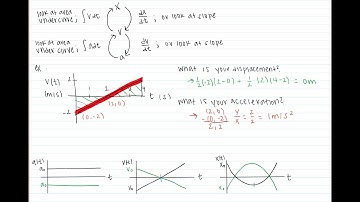 look at area under curve, ∫vdt x dx/dt; or look at slope
v
look at area under curve, ∫adt a dv/dt; or look at slope
v(t) (m/s)
1 2 3 4
t (s)
(2,0)
(0,-2)
-2
what is your displacement?
→ ½(-2)(2-0) + ½(2)(4-2) = 0m
what is your acceleration?
(2,0)
-(0,-2)
2, 2
y/x = 2/2 = 1m/s²
a(t) v(t) x(t)
a₀ v₀ x₀
t t t